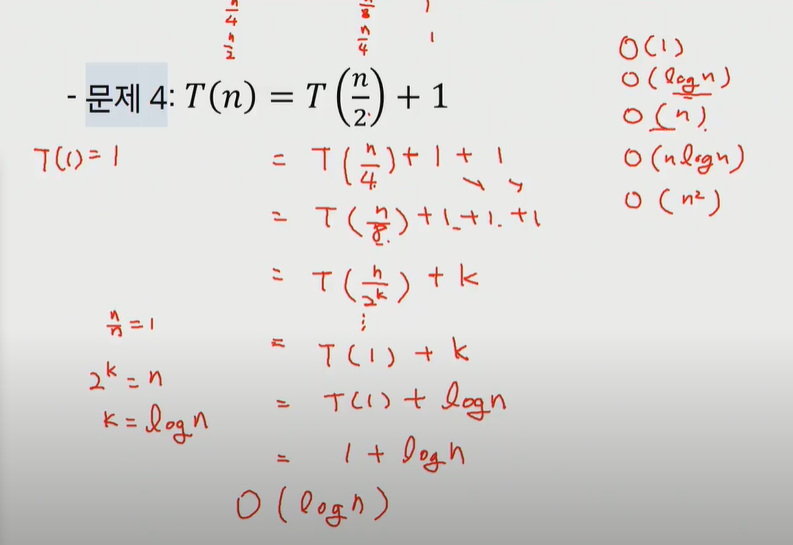 n/4 n/8 1
n/2 n/4 1
- 문제 4: T(n) = T(n/2) + 1
T(1) = 1
= T(n/4) + 1 + 1
= T(n/8) + 1 + 1 + 1
= T(n/2^k) + k
⋮
= T(1) + k
= T(1) + logn
= 1 + logn
O(logn)
n/n = 1
2^k = n
k = logn
O(1)
O(logn)
O(n)
O(nlogn)
O(n²)